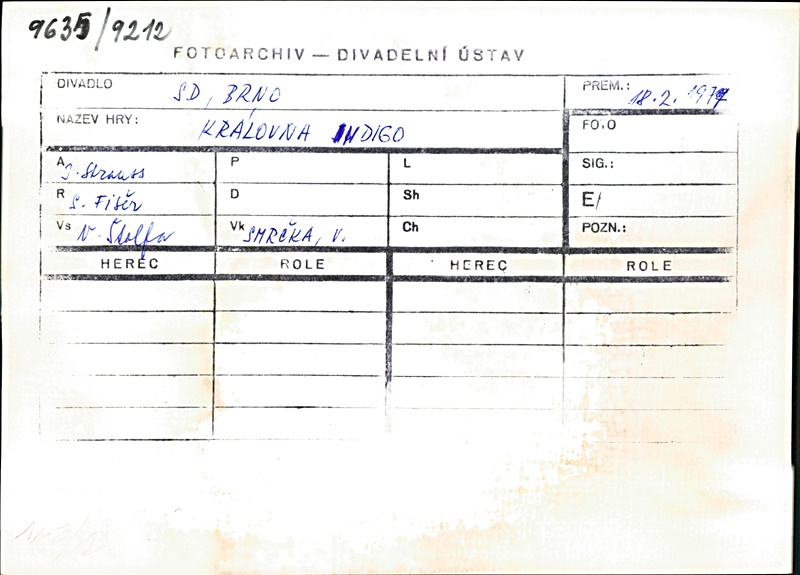 9635/9212
FOTOARCHIV — DIVADELNÍ ÚSTAV
DIVADLO SD, BRNO
PREM.: 18.2.1977
NÁZEV HRY: KRÁLOVNA INDIGO
FOTO
A J. Strauss
P
L
SIG.:
R S. Fišer
D
Sh
E/
Vs V. Štolfa
Vk SMRČKA, V.
Ch
POZN.:
HEREC ROLE HEREC ROLE